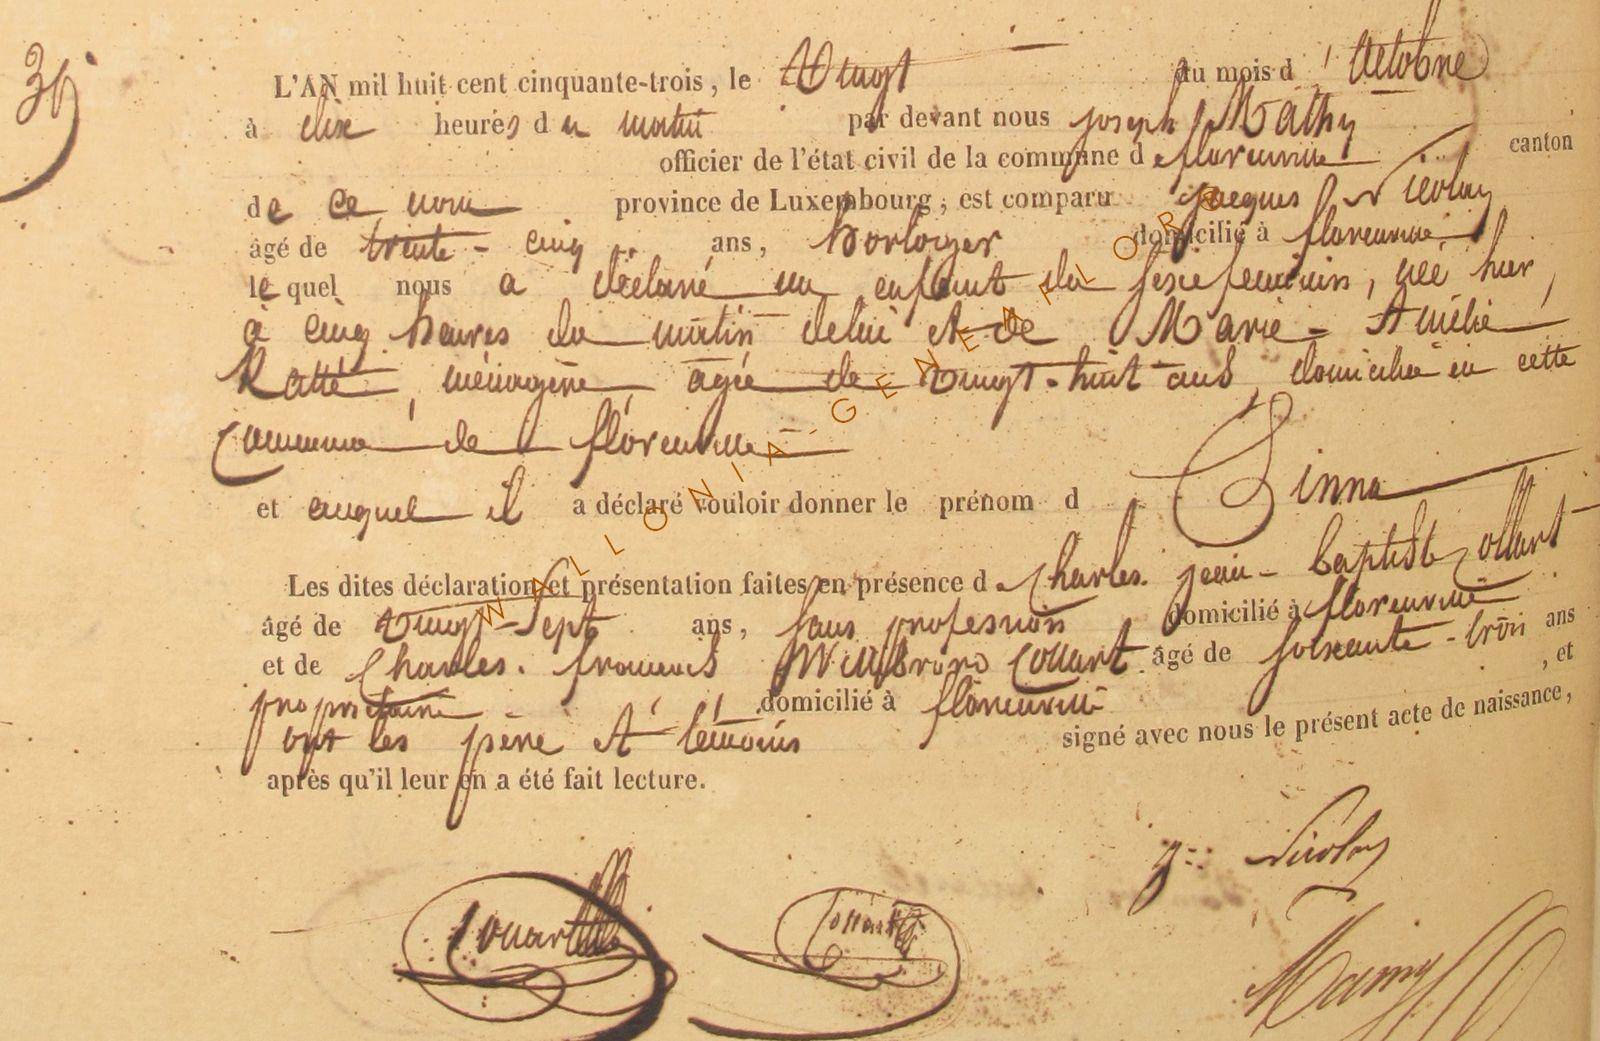 36
L'AN mil huit cent cinquante-trois, le Vingt du mois d'Octobre
à dix heures du matin par devant nous joseph Mathy
officier de l'état civil de la commune de florenville canton
de ce nom province de Luxembourg, est comparu jacques Nicolay
âgé de trente-cinq ans, horloger domicilié à florenville
lequel nous a déclaré un enfant du sexe feminin, née hier,
à cinq heures du matin de lui et de Marie-Amélie
Ratté, ménagère, agée de vingt-huit ans, domiciliée en cette
Commune de florenville
et auquel il a déclaré vouloir donner le prénom d Sinna
Les dites déclaration et présentation faites en présence de Charles jean-baptiste Collart
âgé de Vingt-Sept ans, sans profession domicilié à florenville
et de Charles françois Willbrord Collart âgé de soixante-trois ans
propriétaire domicilié à florenville, et
ont les père et témoins signé avec nous le présent acte de naissance,
après qu'il leur en a été fait lecture.
Nicolay
Collart Collart
WALLONIA-GENEAFLORE